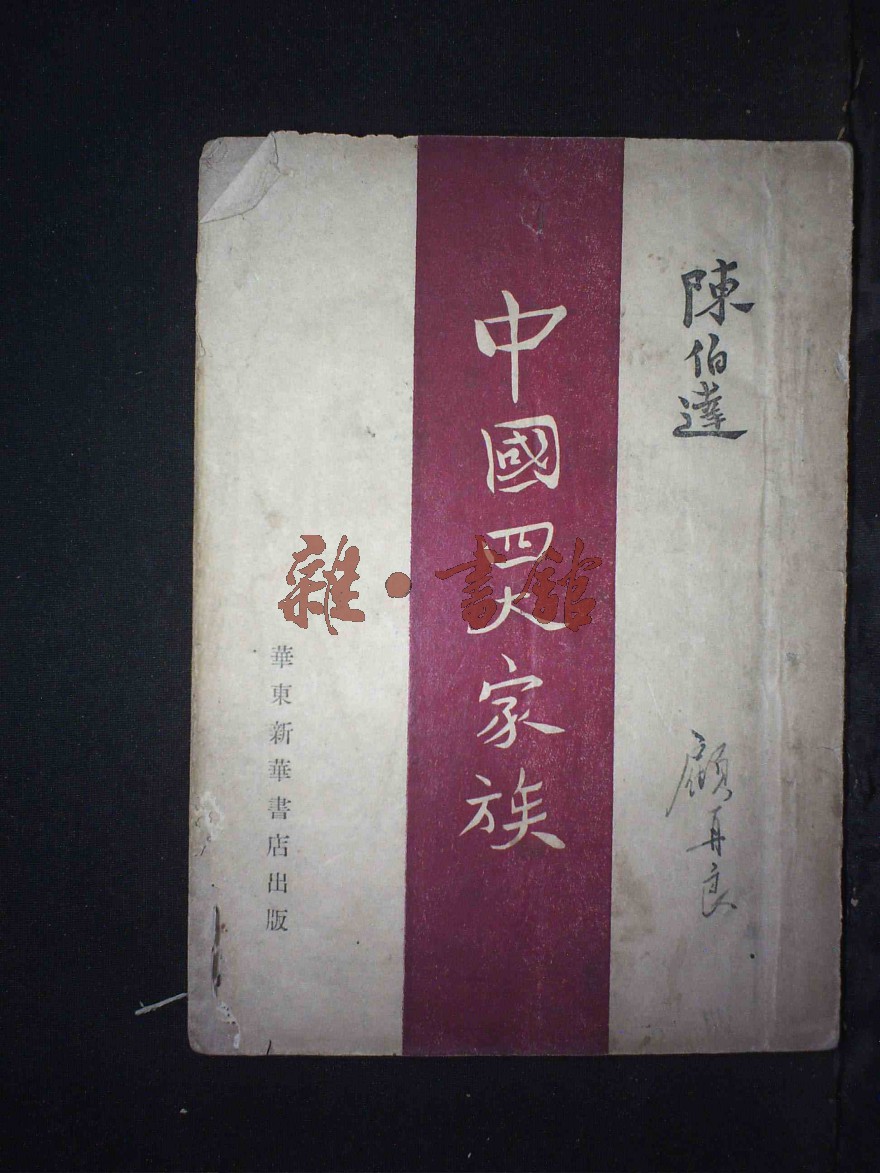 陳伯達
顧再良
中國四大家族
華東新華書店出版
雜·書館